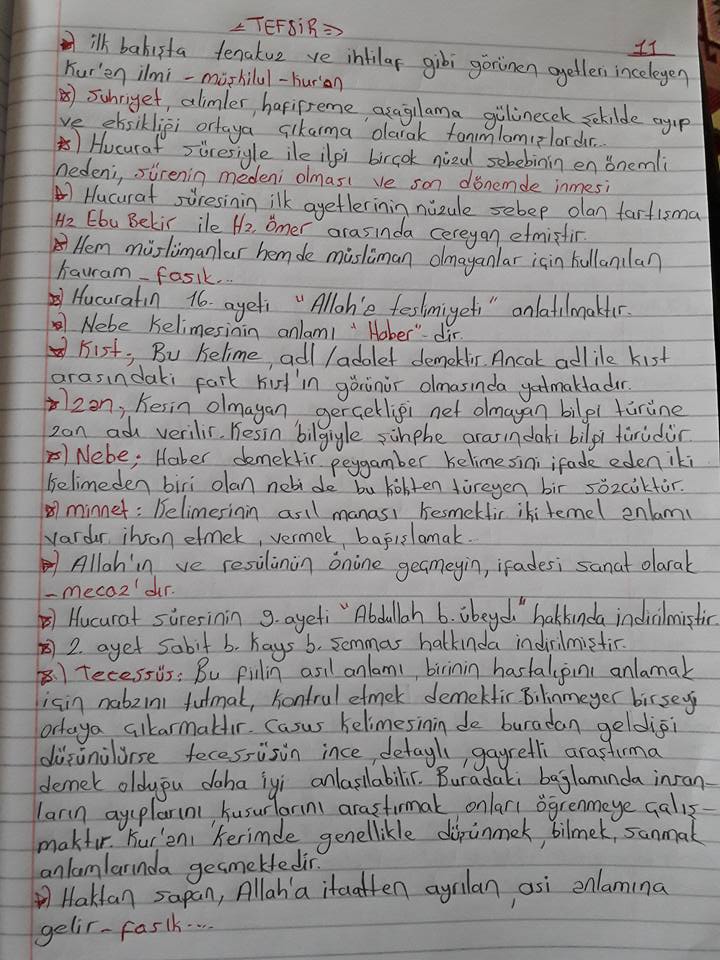 <- TEFSİR =>
11
*) ilk bakışta tenakuz ve ihtilaf gibi görünen ayetleri inceleyen
Kur'an ilmi - müşkilul - kur'an
*) Suhriyet, alimler, hafifseme, aşağılama gülünecek şekilde ayıp
ve eksikliği ortaya çıkarma olarak tanımlamışlardır..
*) Hucurat sûresiyle ile ilgi birçok nüzul sebebinin en önemli
nedeni, sürenin medeni olması ve son dönemde inmesi
*) Hucurat sûresinin ilk ayetlerinin nüzule sebep olan tartışma
Hz Ebu Bekir ile Hz. Ömer arasında cereyan etmiştir.
*) Hem müslümanlar hem de müslüman olmayanlar için kullanılan
kavram - fasık...
*) Hucuratın 16. ayeti "Allah'a teslimiyeti" anlatılmaktır.
*) Nebe kelimesinin anlamı "Haber"-dir.
*) Kıst; Bu kelime, adl /adalet demektir. Ancak adl ile kıst
arasındaki fark kıst'ın görünür olmasında yatmaktadır.
*) Zan; Kesin olmayan gerçekliği net olmayan bilgi türüne
zan adı verilir. Kesin bilgiyle şüphhe arasındaki bilgi türüdür.
*) Nebe; Haber demektir. peygamber kelimesini ifade eden iki
kelimeden biri olan nebi de bu kökten türeyen bir sözcüktür.
*) minnet: Kelimesinin asıl manası kesmektir. iki temel anlamı
vardır. ihsan etmek, vermek, bağışlamak.
*) Allah'ın ve resülünün önüne geçmeyin, ifadesi sanat olarak
- mecaz'dır.
*) Hucurat sûresinin 9. ayeti "Abdullah b. übeydı" hakkında indirilmiştir.
*) 2. ayet Sabit b. Kays b. Şemmas hakkında indirilmiştir.
*) Tecessüs: Bu fiilin asıl anlamı, birinin hastalığını anlamak
için nabzını tutmak, kontrul etmek demektir. Bilinmeyer bir şeyi
ortaya çıkarmaktır. casus kelimesinin de buradan geldiği
düşünülürse tecessüsün ince, detaylı, gayretli araştırma
demek olduğu daha iyi anlaşılabilir. Buradaki bağlamında insan-
ların ayıplarını, kusurlarını araştırmak onları öğrenmeye çalış-
maktır. Kur'anı kerimde genellikle düşünmek, bilmek, sanmak
anlamlarında geçmektedir.
*) Haktan sapan, Allah'a itaatten ayrılan, asi anlamına
gelir - fasık....